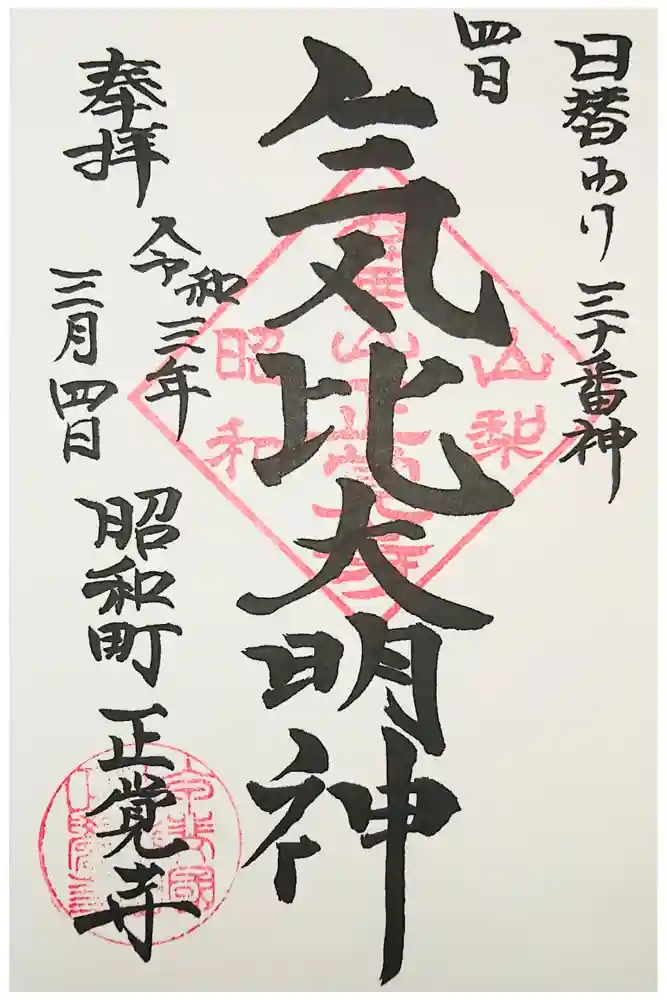 日替わり 三十番神
四日
気比大明神
奉拝
令和三年
三月四日
昭和町 正覚寺
山梨
山正覚寺
昭和